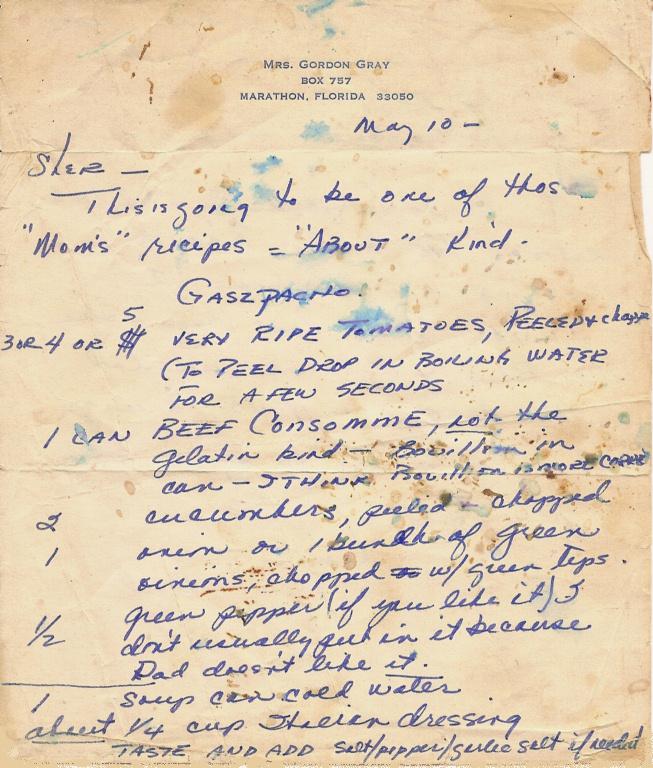 MRS. GORDON GRAY
BOX 757
MARATHON, FLORIDA 33050
May 10 -
Sher -
This is going to be one of thos
"Mom's" recipes = "ABOUT" Kind.
GASZPACHO.
3 OR 4 OR 5 VERY RIPE TOMATOES, PEELED & chopp
(TO PEEL DROP IN BOILING WATER
FOR A FEW SECONDS
1 CAN BEEF CONSOMME, not the
gelatin kind - Bouillon in
can - I THINK Bouillon is MORE
2 cucumbers, peeled - chopped
1 onion or 1 bunch of green
onions, chopped w/ green tops.
1/2 green pepper (if you like it) I
don't usually put in it because
Dad doesn't like it.
1 soup can cold water
about 1/4 cup Italian dressing
TASTE AND ADD salt/pepper/garlic salt if needed